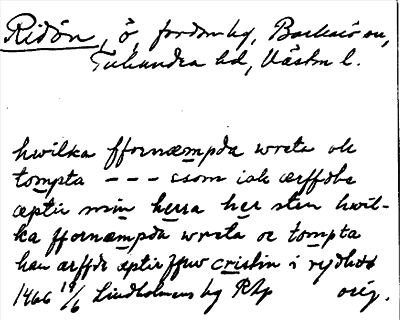 Ridön, ö, fordom hg, Barkarö sn,
Tuhundra hd, Västm l.
hwilka ffornæmpda wreta ok
tompta --- ssom iak ærffde
æptir min herra her sten hwil-
ka ffornæmpda wreta oc tompta
han ærffde æptir ffrw cristin i rydhö
1466 19/6 Lindholmens hg RAp orig.